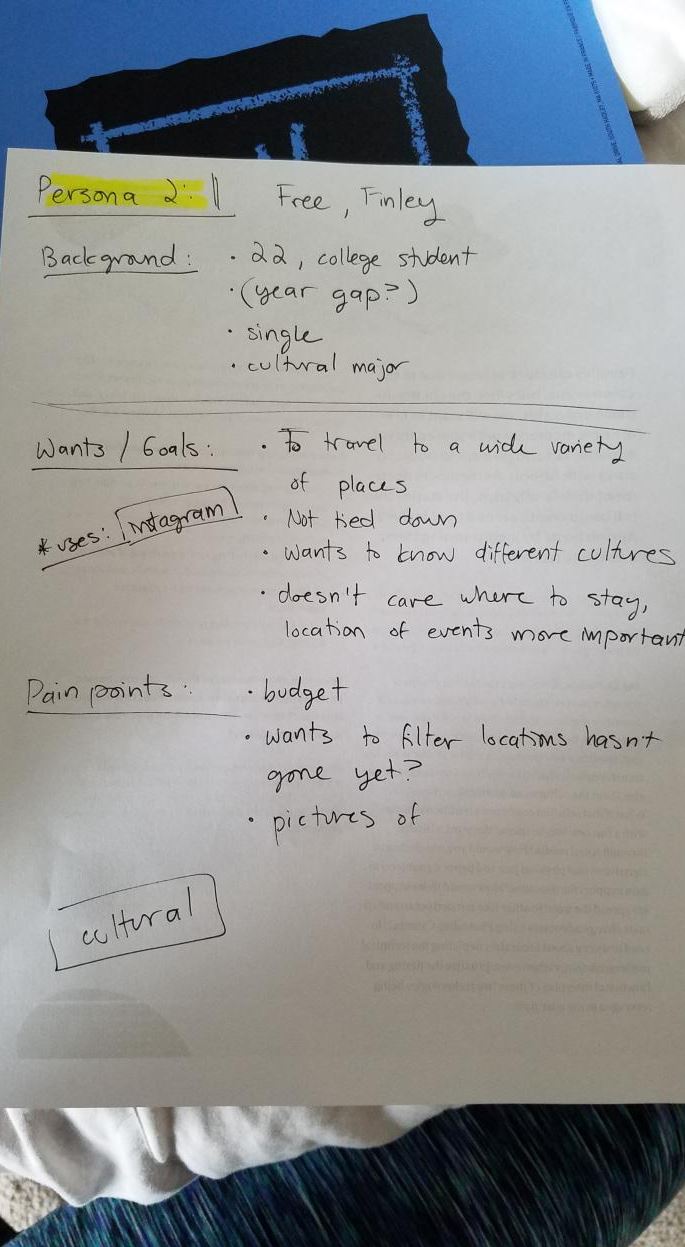 Persona 2: Free, Finley
Background: • 22, college student
• (year gap?)
• single
• cultural major
Wants / Goals: • To travel to a wide variety
of places
* uses: Instagram
• Not tied down
• wants to know different cultures
• doesn't care where to stay,
location of events more important
Pain points: • budget
• wants to filter locations hasn't
gone yet?
• pictures of
cultural